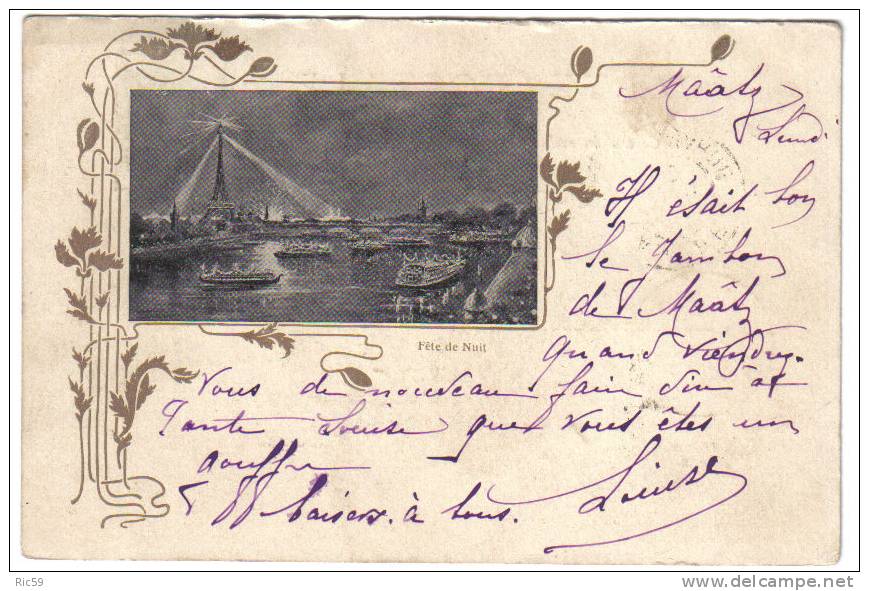 Maâtz
Lundi
Il était bon
le Jambon
de Maâtz
Quand viendrez-
Vous de nouveau faire dire à
Tante Louise que vous êtes un
gouffre
baisers à tous. Louise
Fête de Nuit
Ric59
www.delcampe.net